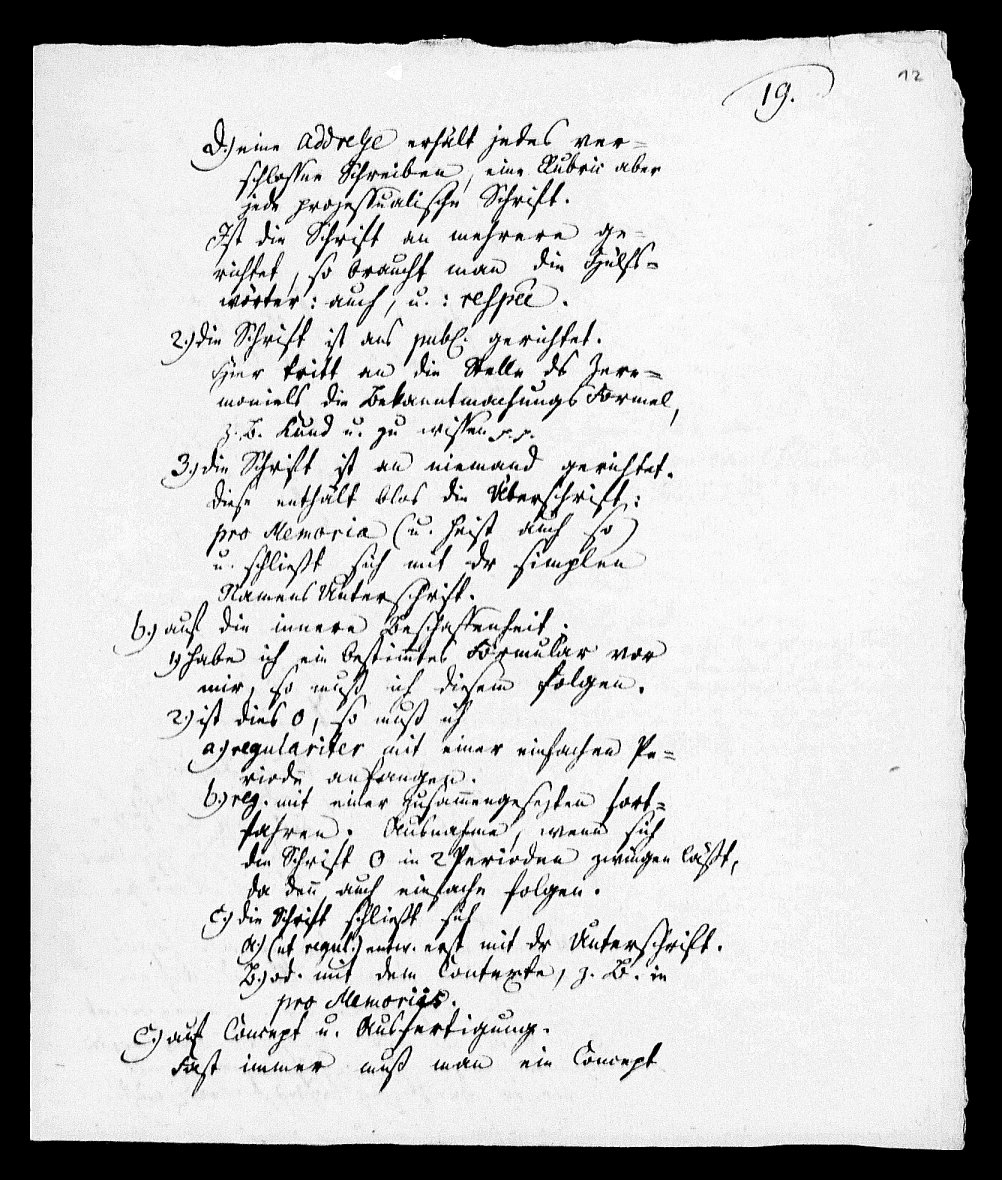 12
19.
D.) eine Addreße erhält jedes ver=
schloßne Schreiben, eine Rubric aber
jede prozeßualische Schrift.
Ist die Schrift an mehrere ge=
richtet, so braucht man die Hülfs=
wörter: auch, u.: respee.
2.) die Schrift ist ans publ. gerichtet.
Hier tritt an die Stelle ds Zere=
moniels die Bekanntmachungs Formel,
z. B. Kund u. zu wißen p. p.
3.) die Schrift ist an niemand gerichtet.
diese enthält blos die Überschrift:
pro Memoria (u. heist auch so)
u. schließt sich mit dr simplen
Namens Unterschrift.
b.) auf die innere Beschaffenheit.
1) habe ich ein bestimmtes Formular vor
mir, so muß ich diesem folgen.
2.) ist dies 0, so muß ich
a.) regulariter mit einer einfachen Pe=
riode anfangen.
b.) reg. mit einer zusam̄engesezten fort=
fahren. Ausnahme, wenn sich
die Schrift 0 in 2 Perioden zwingen läßt,
da den̄ auch einfache folgen.
c.) die Schrift schließt sich
a.) (ut regul.) entw. erst mit dr Unterschrift.
B.) od. mit dem Contexte, z. B. in
pro Memoriis.
C.) auf Concept u. Ausfertigung.
Fast immer muß man ein Concept